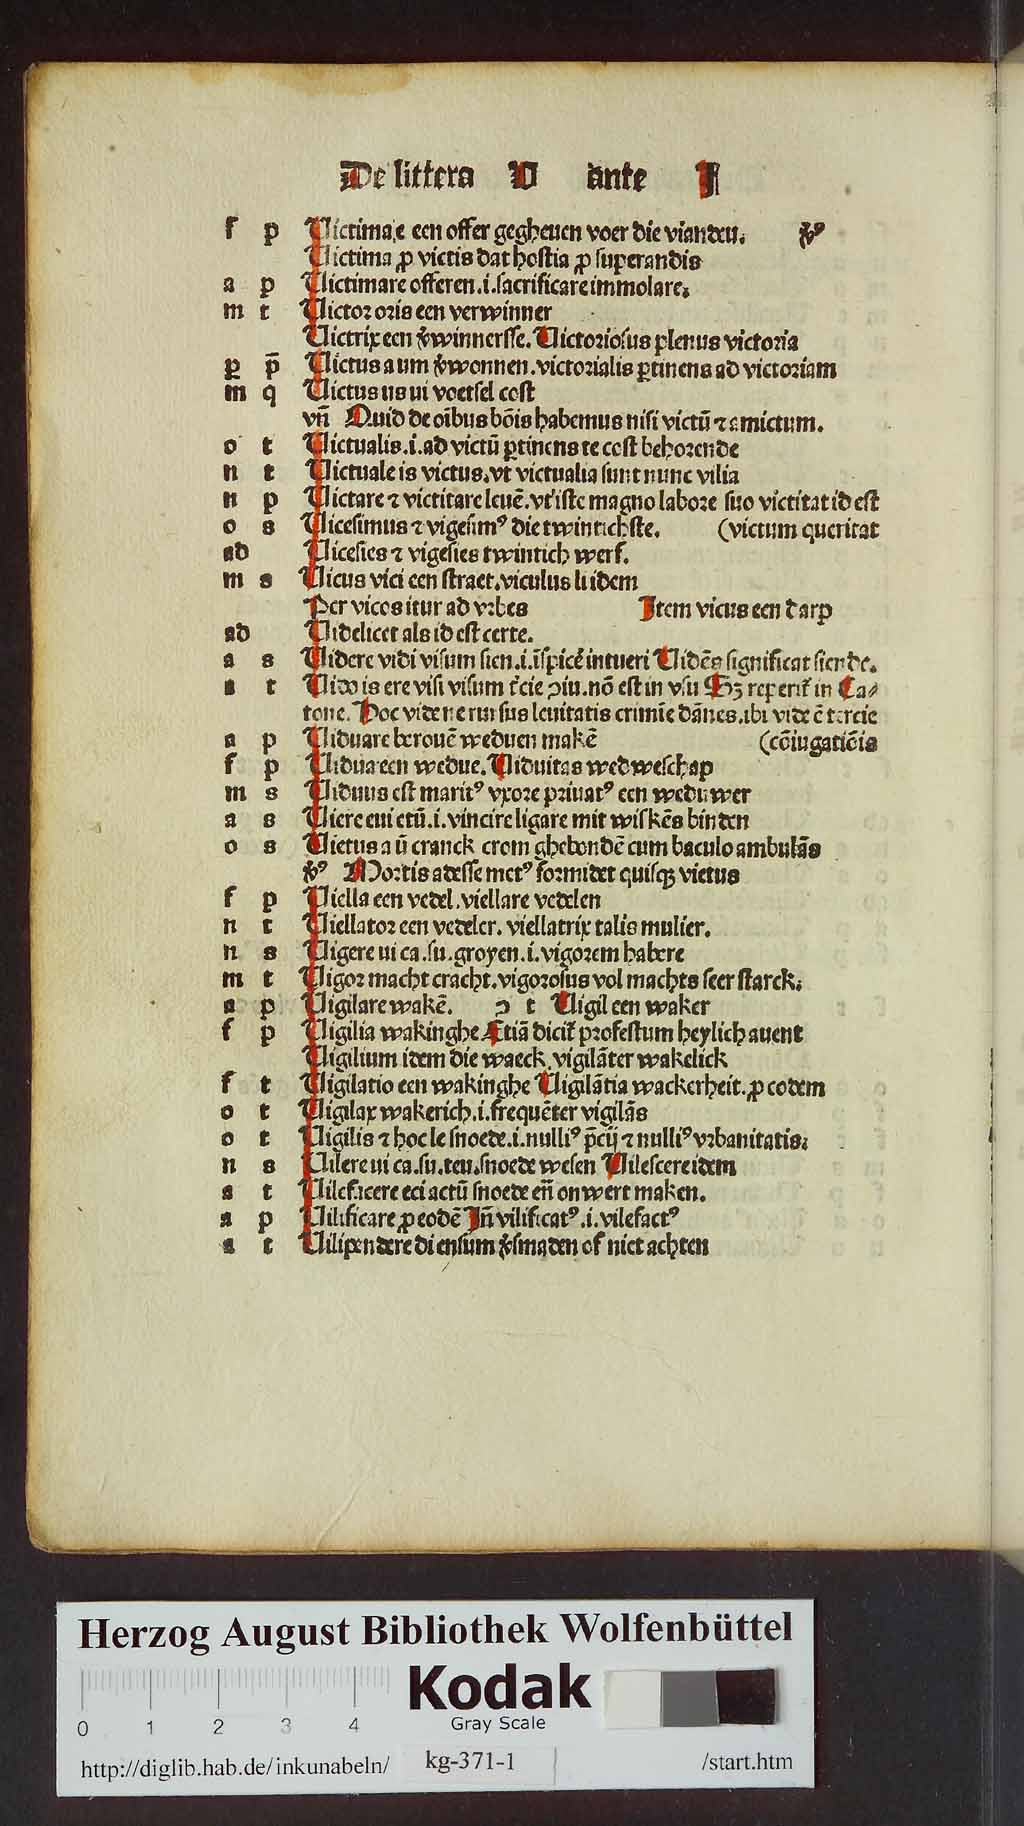 De littera V ante I
f p Victima.e een offer gegheuen voer die vianden. v̾ꝰ
Victima ꝓ victis dat hostia ꝓ superandis
a p Victimare offeren.i.sacrificare immolare.
m t Victor oris een verwinner
Victrix een v̾winnersse. Victoriosus plenus victoria
ꝑ p̄ Victus a um v̾wonnen.victorialis ꝑtinens ad victoriam
m q Victus us ui voetsel cost
vn̄ Quid de oībus bōis habemus nisi victū ⁊ amictum.
o t Victualis.i.ad victū ꝑtinens te cost behorende
n t Victuale is victus.vt victualia sunt nunc vilia
n p Victare ⁊ victitare leuē.vt iste magno labore suo victitat id est
o s Vicesimus ⁊ vigesimꝰ die twintichste. (victum queritat
ad Vicesies ⁊ vigesies twintich werf.
m s Vicus vici een straet.viculus li idem
Per vicos itur ad vrbes Item vicus een darp
ad Videlicet als id est certe.
a s Videre vidi visum sien.i.īspicē intueri Vidēs significat siende.
a t Vido is ere visi visum t̾cie ꝯiu.nō est in vsu Sꝫ reperit̾ in Ca⸗
tone. Hoc vide ne rursus leuitatis crimīe dānes.ibi vide ē tercie
a p Viduare berouē weduen makē (cōiugatiōis
f p Vidua een wedue. Viduitas wedweschap
m s Viduus est maritꝰ vxore priuatꝰ een weduwer
a s Viere eui etū.i.vincire ligare mit wiskēs binden
o s Vietus a ū cranck crom ghebondē cum baculo ambulās
v̾ꝰ Mortis adesse metꝰ formidet quisqꝫ vietus
f p Viella een vedel.viellare vedelen
n t Viellator een vedeler. viellatrix talis mulier.
n s Vigere ui ca.su.groyen.i.vigorem habere
m t Vigor macht cracht.vigorosus vol machts seer starck.
a p Vigilare wakē. ꝯ t Vigil een waker
f p Vigilia wakinghe Etiā dicit̾ profestum heylich auent
Vigilium idem die waeck.vigilāter wakelick
f t Vigilatio een wakinghe Vigilātia wackerheit.ꝓ eodem
o t Vigilax wakerich.i.frequēter vigilās
o t Vigilis ⁊ hoc le snoede.i.nulliꝰ p̄cij ⁊ nulliꝰ vrbanitatis.
n s Vilere ui ca.su.teu.snoede wesen Vilescere idem
a t Vilefacere eci actū snoede eñ onwert maken.
a p Vilificare ꝓ eodē Iñ vilificatꝰ.i.vilefactꝰ
a t Vilipendere di ensum v̾smaden of niet achten
Herzog August Bibliothek Wolfenbüttel
Kodak
Gray Scale
0 1 2 3 4
http://diglib.hab.de/inkunabeln/ kg-371-1 /start.htm